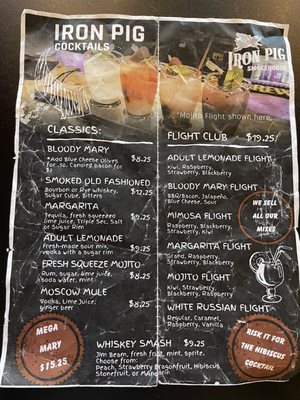 IRON PIG
COCKTAILS
IRON PIG
SMOKEHOUSE
*Mojito Flight shown here
CLASSICS:
BLOODY MARY
*Add Blue Cheese Olives
for .50, Candied bacon for
$2
$8.25
SMOKED OLD FASHIONED
Bourbon or Rye whiskey,
Sugar Cube, Bitters
$12.25
MARGARITA
Tequila, fresh squeezed
lime juice, Triple Sec, Salt
or Sugar Rim
$9.25
ADULT LEMONADE
Fresh-made sour mix,
vodka with a sugar rim
$9.25
FRESH SQUEEZE MOJITO
Rum, sugar, lime juice,
soda water, mint
$8.25
MOSCOW MULE
Vodka, Lime Juice,
ginger beer
$8.25
MEGA
MARY
$15.25
WHISKEY SMASH $9.25
Jim Beam, fresh fruit, mint, sprite.
Choose from:
Peach, Strawberry Dragonfruit, Hibiscus
Stonefruit, or Mandarin
FLIGHT CLUB $19.25
ADULT LEMONADE FLIGHT
Kiwi, Raspberry,
Strawberry, Blackberry
BLOODY MARY FLIGHT
BBQ/Bacon, Jalapeño,
Blue Cheese, Sour
MIMOSA FLIGHT
Raspberry, Blackberry,
Strawberry, Kiwi
MARGARITA FLIGHT
Grand, Raspberry,
Strawberry, Blackberry
MOJITO FLIGHT
Kiwi, Strawberry,
Blackberry, Raspberry
WHITE RUSSIAN FLIGHT
Regular, Caramel,
Raspberry, Vanilla
WE SELL
ALL OUR
MIXES
RISK IT FOR
THE HIBISCUS
COCKTAIL